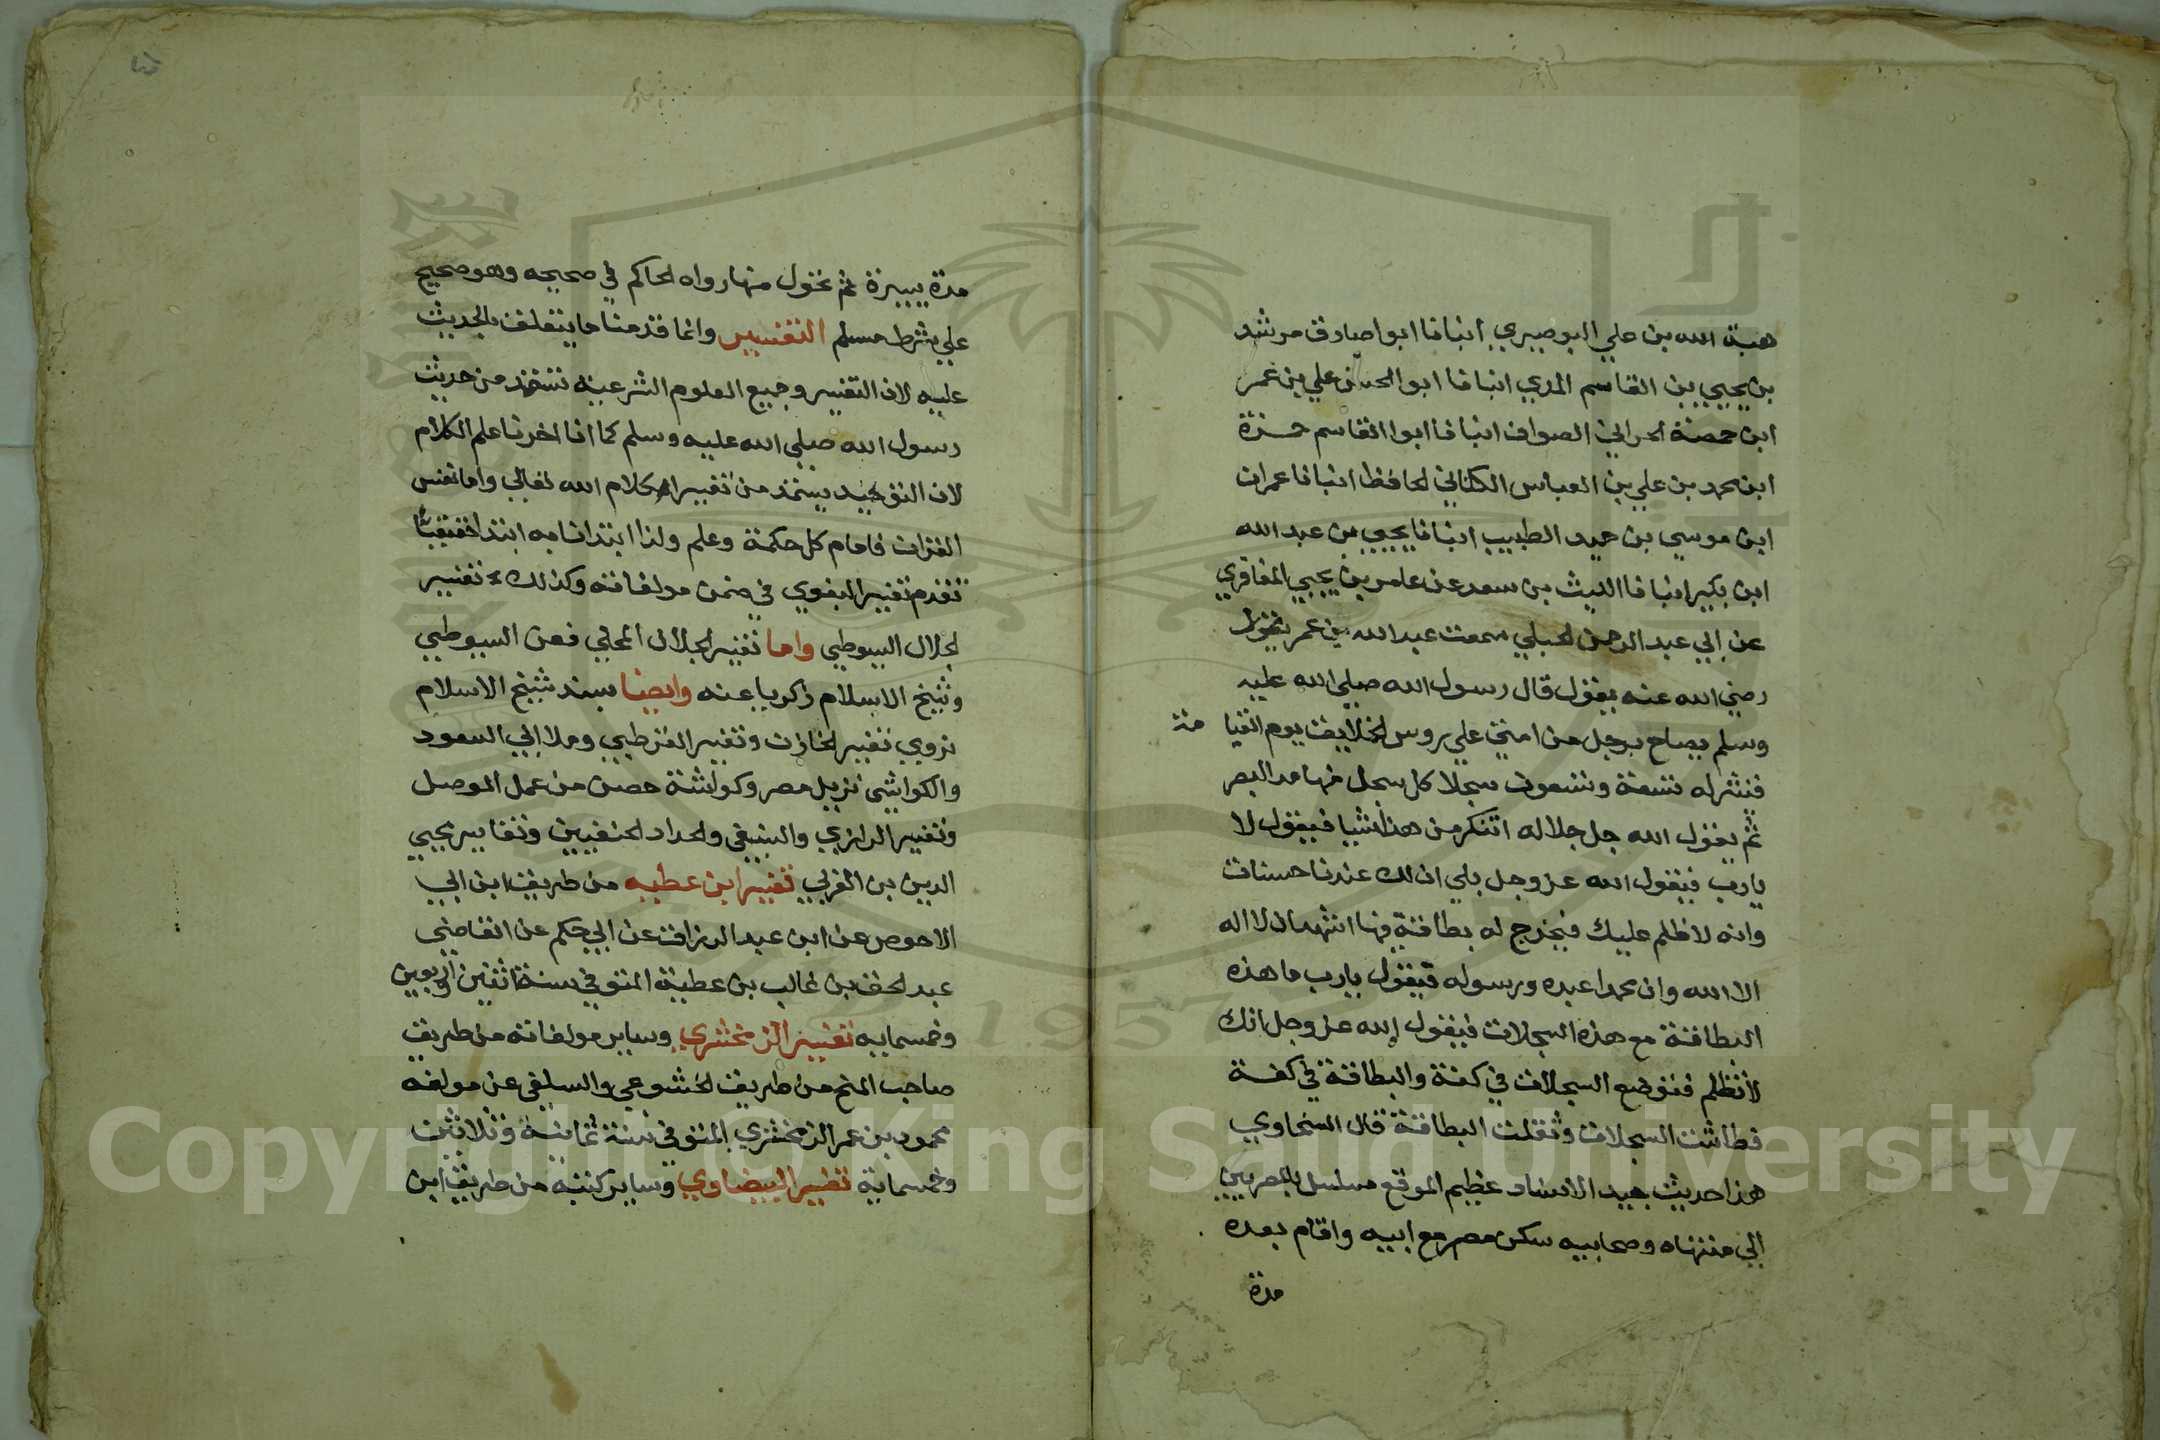 هبة الله بن علي البوصيري انبانا ابوا صادق مرشد
بن يحيي بن القاسم المدي انبانا ابوا الحسن علي بن عمر
ابن حمصة الحراني الصواف انبانا ابوا القاسم حمزة
ابن محمد بن علي بن العباس الكناني الحافظ انبانا عمران
ابن موسي بن حميد الطبيب انبانا يحيي بن عبد الله
ابن بكير انبانا الليث بن سعد عن عامر بن يحيي المعافري
عن ابي عبد الرحمن الحبلي سمعت عبد الله بن عمر يقول
رضي الله عنه يقول قال رسول الله صلي الله عليه
وسلم يصاح برجل من امتي علي روس الخلايق يوم القيا مة
فنشر له تسعة وتسعون سجلا كل سجل منها مد البصر
ثم يقول الله جل جلاله اتنكر من هذا شيا فيقول لا
يارب فيقول الله عز وجل بلي ان لك عندنا حسنات
وانه لا ظلم عليك فيخرج له بطاقة فيها اشهد ان لا اله
الا الله وان محمدا عبده ورسوله فيقول يارب ما هذه
البطاقة مع هذه السجلات فيقول الله عز وجل انك
لا تظلم فتوضع السجلات في كفة والبطاقة في كفة
فطاشت السجلات وثقلت البطاقة قال السخاوي
هذا حديث جيد الاسناد عظيم الموقع مسلسل بالمصريين
الي منتهاه وصحابيه سكن مصر مع ابيه واقام بعده
مدة
مدة يسيرة ثم تحول منها رواه الحاكم في صحيحه وهو صحيح
علي شرط مسلم التفسير وانما قدمنا ما يتعلق بالحديث
عليه لان التفسير وجميع العلوم الشرعية تستمد من حديث
رسول الله صلي الله عليه وسلم كما انا اخرنا علم الكلام
لان التوحيد يستمد من تفسير كلام الله تعالي واما تفسير
القران فامام كل حكمة وعلم ولذا ابتدانا به ابتدا حقيقيا
تقدم تفسير البغوي في ضمن مولفاته وكذلك تفسير
الجلال السيوطي واما تفسير الجلال المحلي فعن السيوطي
وشيخ الاسلام زكريا عنه وايضا بسند شيخ الاسلام
نروي تفسير الخازن وتفسير القرطبي وملا ابي السعود
والكواشي نزيل مصر وكواشة حصن من عمل الموصل
وتفسير الرازي والنسفي والحداد الحنفيين وتفاسير محيي
الدين بن العربي تفسير ابن عطيه من طريق ابن ابي
الاحوص عن ابن عبد الرزاق عن ابي حكم عن القاضي
عبد الحق بن غالب بن عطية المتوفي سنة اثنين اربعين
وخمسمايه تفسير الزمخشري وساير مولفاته من طريق
صاحب المنح من طريق الخشوعي والسلفي عن مولفه
محمود بن عمر الزمخشري المتوفي سنة ثمانية وثلاثين
وخمسماية تفسير البيضاوي وساير كتبه من طريق ابن
1957
Copyright © King Saud University